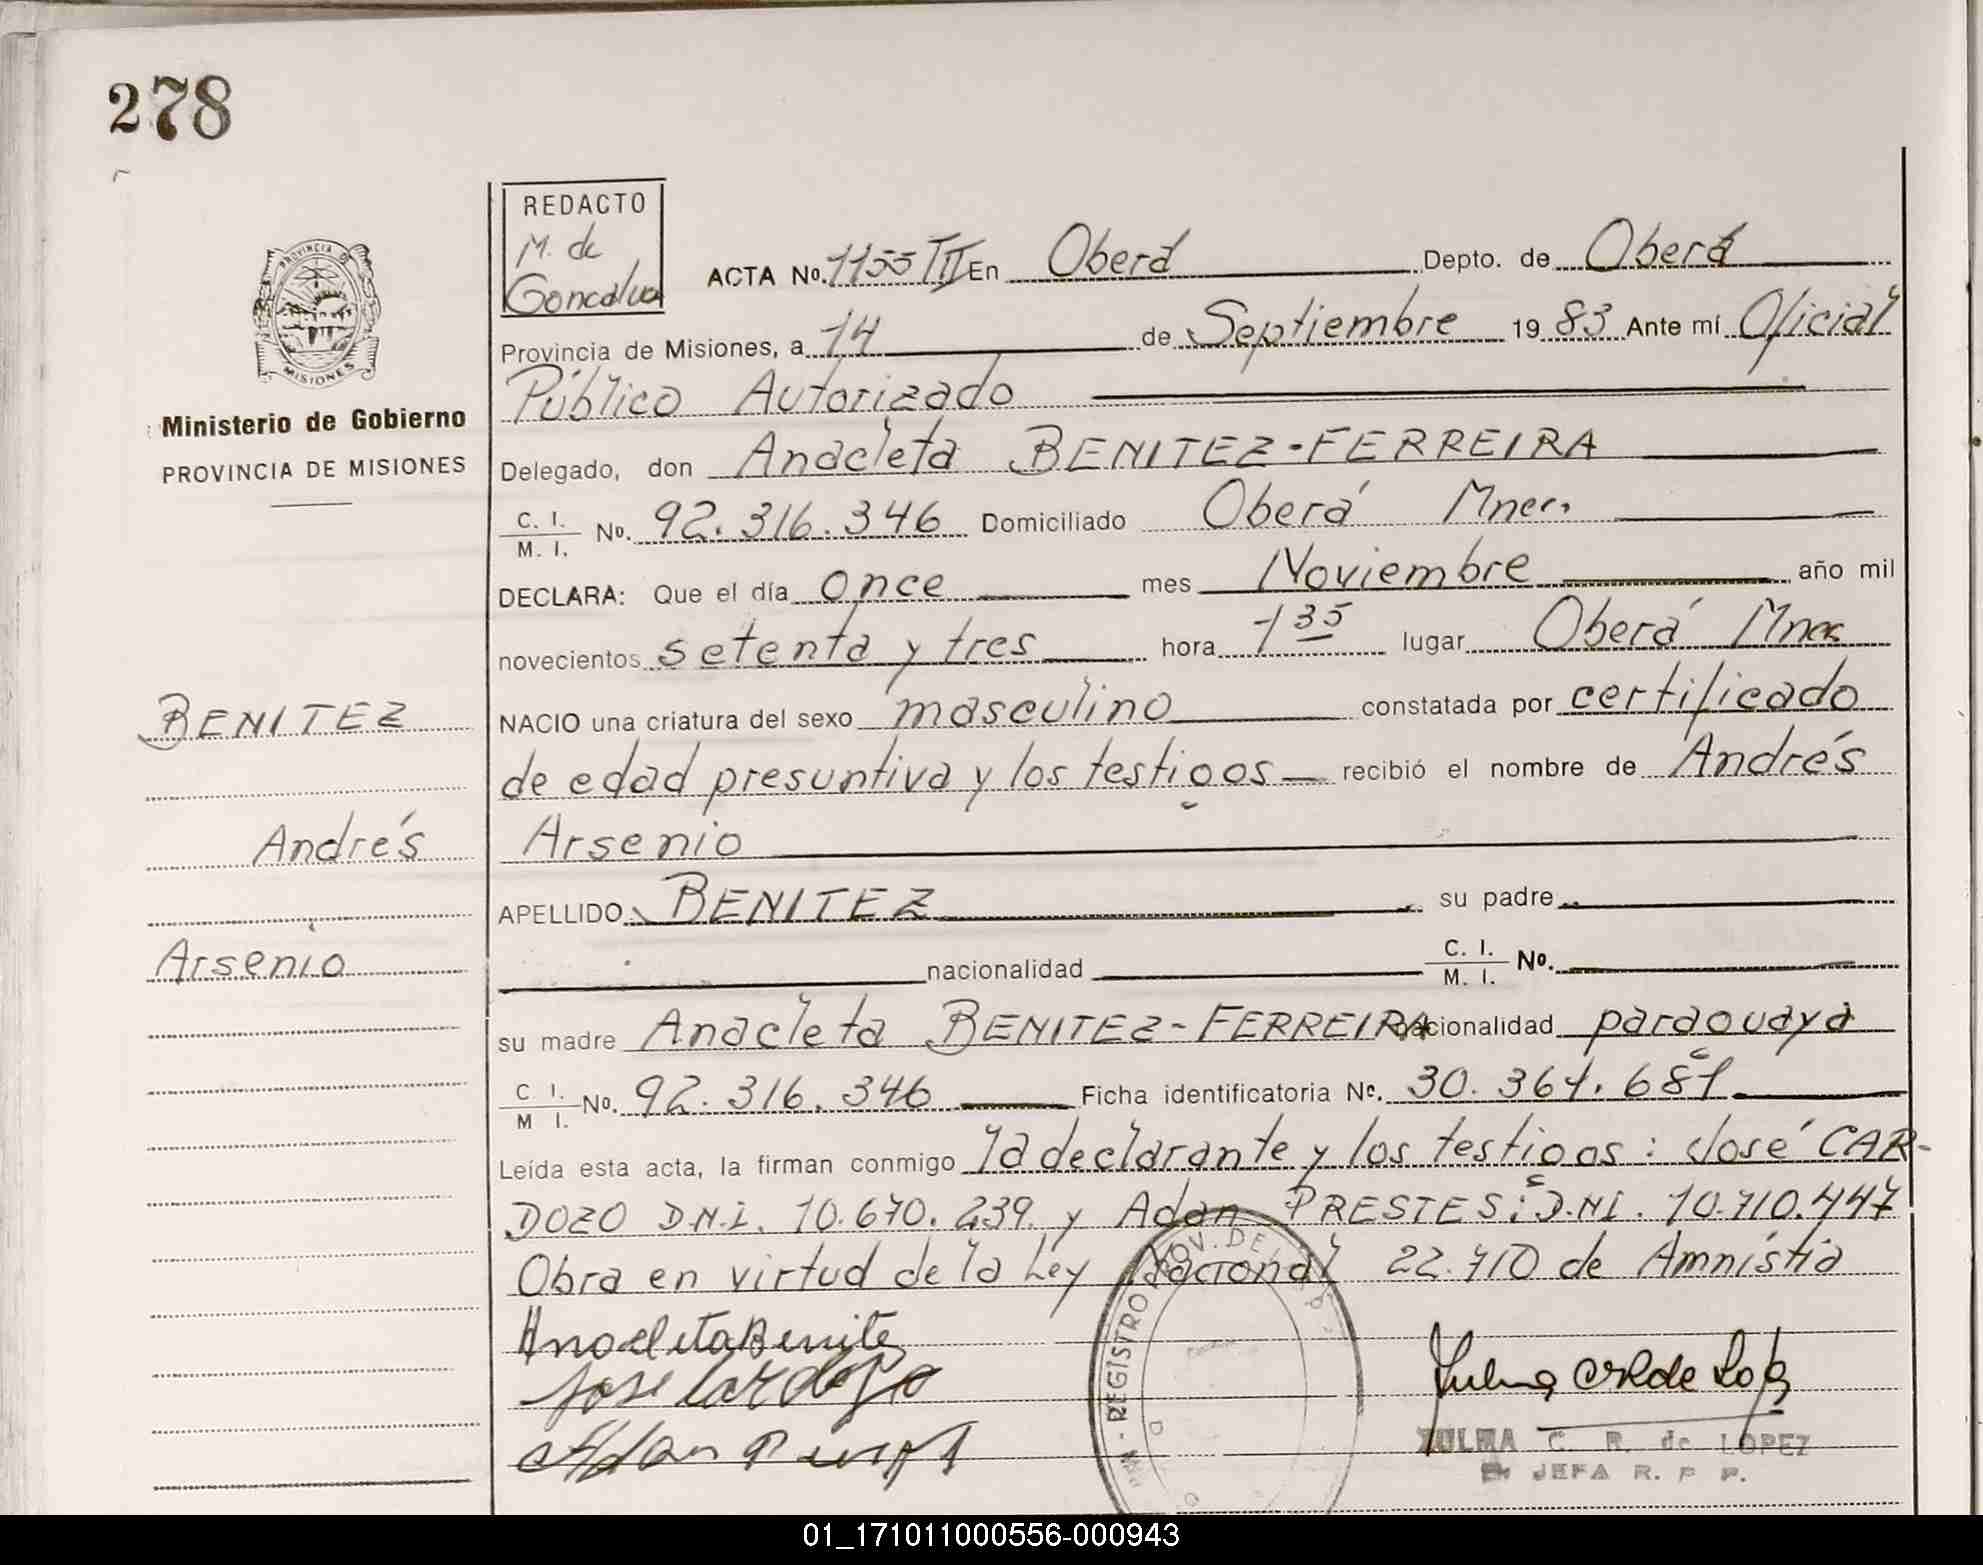 278
REDACTO
M. de
Goncalves
ACTA No. 1155 III En Oberá Depto. de Oberá
Provincia de Misiones, a 14 de Septiembre 19 83 Ante mí Oficial
Público Autorizado
Delegado, don Anacleta BENITEZ-FERREIRA
C. I.
M. I. No. 92.316.346 Domiciliado Oberá Mnes.
DECLARA: Que el día once mes Noviembre año mil
novecientos setenta y tres hora 1 35 lugar Oberá Mnes
NACIO una criatura del sexo masculino constatada por certificado
de edad presuntiva y los testigos recibió el nombre de Andrés
Arsenio
APELLIDO BENITEZ su padre
nacionalidad C. I.
M. I. No.
su madre Anacleta BENITEZ-FERREIRA nacionalidad paraguaya
C I.
M I. No. 92.316.346 Ficha identificatoria No. 30.361.681
Leída esta acta, la firman conmigo la declarante y los testigos: José CAR-
DOZO D.N.I. 10.670.239. y Adan PRESTES: D.NI. 10.710.447
Obra en virtud de la Ley Nacional 22.710 de Amnistia
Jose Cardozo
Adan
ZULMA C. R. de LOPEZ
JEFA R. P P.
REGISTRO PROV. DE LAS
PROVINCIA D
MISIONES
Ministerio de Gobierno
PROVINCIA DE MISIONES
BENITEZ
Andrés
Arsenio
01_171011000556-000943